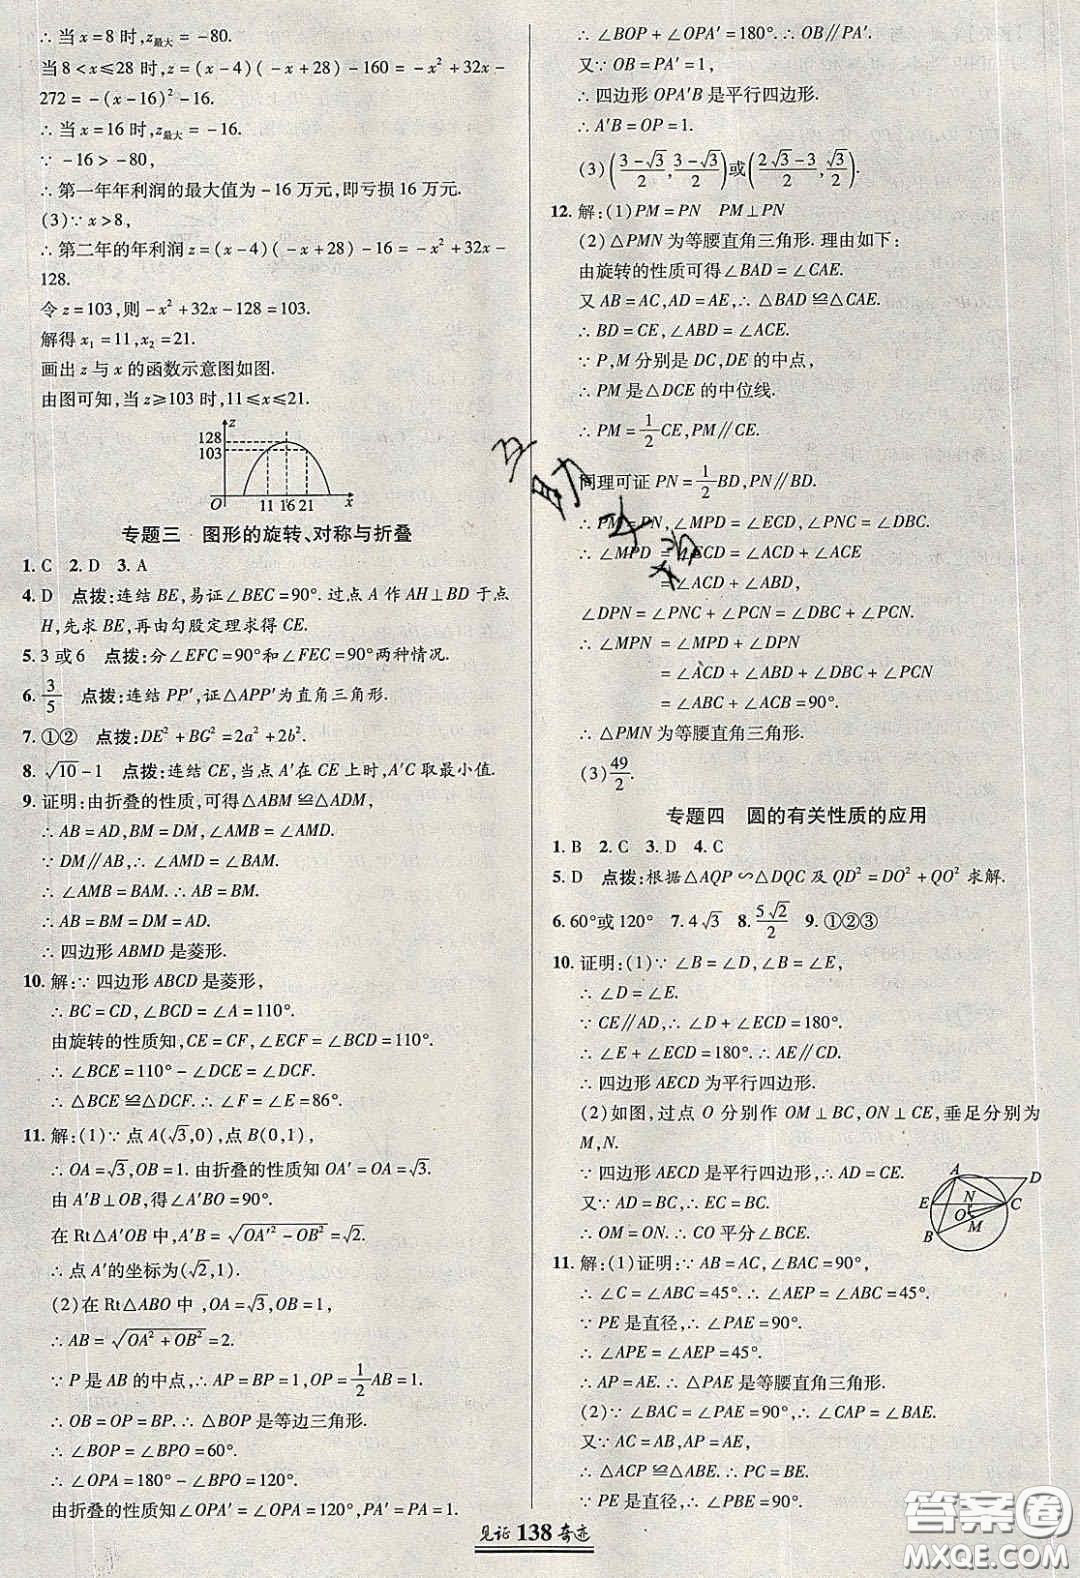 ∴当x=8时,z最大=-80.
当8<x≤28时,z=(x-4)(-x+28)-160=-x²+32x-
272=-(x-16)²-16.
∴当x=16时,z最大=-16.
∵-16>-80,
∴第一年年利润的最大值为-16万元,即亏损16万元.
(3)∵x>8,
∴第二年的年利润z=(x-4)(-x+28)-16=-x²+32x-
128.
令z=103,则-x²+32x-128=103.
解得x₁=11,x₂=21.
画出z与x的函数示意图如图.
由图可知,当z≥103时,11≤x≤21.
z
128
103
O 11 16 21 x
专题三 图形的旋转、对称与折叠
1. C 2. D 3. A
4. D 点拨:连结BE,易证∠BEC=90°.过点A作AH⊥BD于点
H,先求BE,再由勾股定理求得CE.
5. 3或6 点拨:分∠EFC=90°和∠FEC=90°两种情况.
6. 3/5 点拨:连结PP′,证△APP′为直角三角形.
7. ①② 点拨:DE²+BG²=2a²+2b².
8. √10-1 点拨:连结CE,当点A′在CE上时,A′C取最小值.
9. 证明:由折叠的性质,可得△ABM≌△ADM,
∴AB=AD,BM=DM,∠AMB=∠AMD.
∵DM∥AB,∴∠AMD=∠BAM.
∴∠AMB=∠BAM.∴AB=BM.
∴AB=BM=DM=AD.
∴四边形ABMD是菱形.
10. 解:∵四边形ABCD是菱形,
∴BC=CD,∠BCD=∠A=110°.
由旋转的性质知,CE=CF,∠ECF=∠BCD=110°.
∴∠BCE=110°-∠DCE=∠DCF.
∴△BCE≌△DCF.∴∠F=∠E=86°.
11. 解:(1)∵点A(√3,0),点B(0,1),
∴OA=√3,OB=1.由折叠的性质知OA′=OA=√3.
由A′B⊥OB,得∠A′BO=90°.
在Rt△A′OB中,A′B=√(OA′²-OB²)=√2.
∴点A′的坐标为(√2,1).
(2)在Rt△ABO中,OA=√3,OB=1,
∴AB=√(OA²+OB²)=2.
∵P是AB的中点,∴AP=BP=1,OP=1/2AB=1.
∴OB=OP=BP.∴△BOP是等边三角形.
∴∠BOP=∠BPO=60°.
∴∠OPA=180°-∠BPO=120°.
由折叠的性质知∠OPA′=∠OPA=120°,PA′=PA=1.
∴∠BOP+∠OPA′=180°.∴OB∥PA′.
又∵OB=PA′=1,
∴四边形OPA′B是平行四边形.
∴A′B=OP=1.
(3)((3-√3)/2,(3-√3)/2)或((2√3-3)/2,√3/2).
12. 解:(1)PM=PN PM⊥PN
(2)△PMN为等腰直角三角形.理由如下:
由旋转的性质可得∠BAD=∠CAE.
又AB=AC,AD=AE,∴△BAD≌△CAE.
∴BD=CE,∠ABD=∠ACE.
∵P,M分别是DC,DE的中点,
∴PM是△DCE的中位线.
∴PM=1/2CE,PM∥CE.
同理可证PN=1/2BD,PN∥BD.
∴PM=PN,∠MPD=∠ECD,∠PNC=∠DBC.
∴∠MPD=∠ECD=∠ACD+∠ACE
=∠ACD+∠ABD,
∠DPN=∠PNC+∠PCN=∠DBC+∠PCN.
∴∠MPN=∠MPD+∠DPN
=∠ACD+∠ABD+∠DBC+∠PCN
=∠ABC+∠ACB=90°.
∴△PMN为等腰直角三角形.
(3)49/2.
专题四 圆的有关性质的应用
1. B 2. C 3. D 4. C
5. D 点拨:根据△AQP∽△DQC及QD²=DO²+QO²求解.
6. 60°或120° 7. 4√3 8. 5√2/2 9. ①②③
10. 证明:(1)∵∠B=∠D,∠B=∠E,
∴∠D=∠E.
∵CE∥AD,∴∠D+∠ECD=180°.
∴∠E+∠ECD=180°.∴AE∥CD.
∴四边形AECD为平行四边形.
(2)如图,过点O分别作OM⊥BC,ON⊥CE,垂足分别为
M,N.
∵四边形AECD是平行四边形,∴AD=CE.
又∵AD=BC,∴EC=BC.
∴OM=ON.∴CO平分∠BCE.
A D
E N C
O
B M
11. 解:(1)证明:∵AB=AC,∠BAC=90°,
∴∠C=∠ABC=45°.∴∠AEP=∠ABC=45°.
∵PE是直径,∴∠PAE=90°.
∴∠APE=∠AEP=45°.
∴AP=AE.∴△PAE是等腰直角三角形.
(2)∵∠BAC=∠PAE=90°,∴∠CAP=∠BAE.
又∵AC=AB,AP=AE,
∴△ACP≌△ABE.∴PC=BE.
∵PE是直径,∴∠PBE=90°.
见证138奇迹
答案圈
MXQE.COM